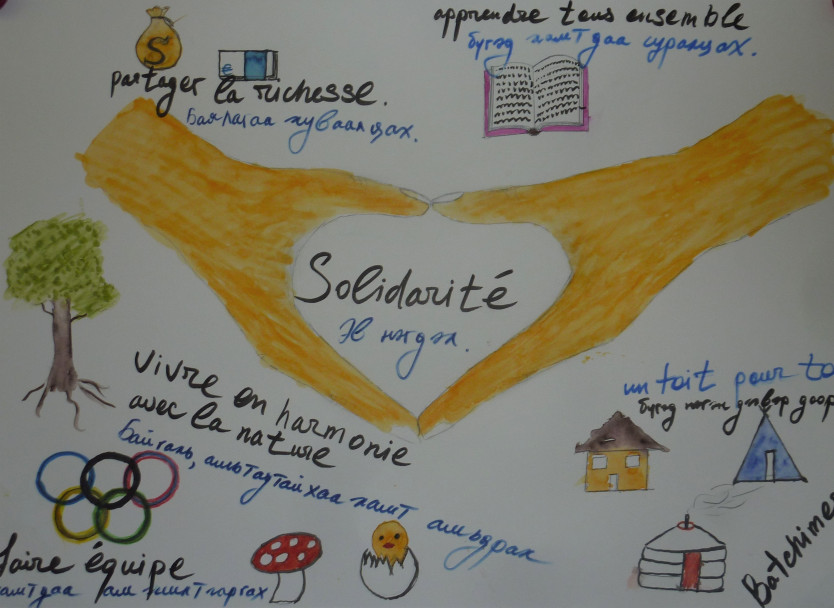 apprendre tous ensemble
бүгд хамтдаа суралцах.
S
partager la richesse.
Баялагаа хуваалцах.
Solidarité
Эв нэгдэл.
vivre en harmonie
avec la nature
Байгаль, амьтадтайгаа хамт амьдрах
un toit pour to
бүгд нэгэн дээвэр доор
faire équipe
хамтдаа
Batchime